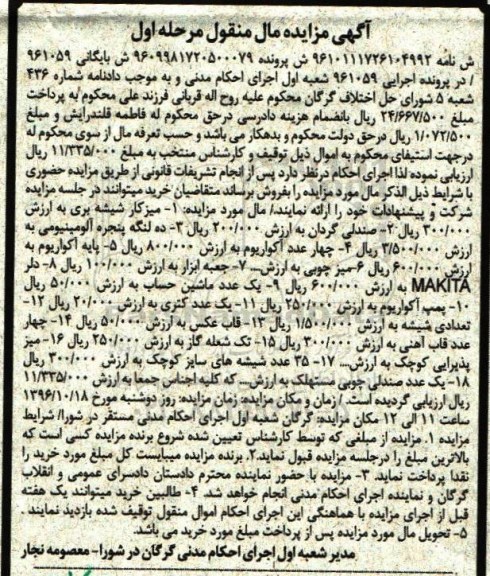 آگهی مزایده مال منقول مرحله اول
ش نامه ۹۶۱۰۱۱۱۷۲۶۱۰۴۹۹۲ ش پرونده ۹۶۰۹۹۸۱۷۲۰۵۰۰۰۷۹ ش بایگانی ۹۶۱۰۵۹
/ در پرونده اجرایی ۹۶۱۰۵۹ شعبه اول اجرای احکام مدنی و به موجب دادنامه شماره ۴۳۶
شعبه ۵ شورای حل اختلاف گرگان محکوم علیه روح اله قربانی فرزند علی محکوم به پرداخت
مبلغ ۲۴/۶۶۷/۵۰۰ ریال بانضمام هزینه دادرسی درحق محکوم له فاطمه قلندرآیش و مبلغ
۱/۰۷۲/۵۰۰ ریال درحق دولت محکوم و بدهکار می باشد و حسب تعرفه مال از سوی محکوم له
درجهت استیفای محکوم به اموال ذیل توقیف و کارشناس منتخب به مبلغ ۱۱/۳۳۵/۰۰۰ ریال
ارزیابی نموده لذا اجرای احکام درنظر دارد پس از انجام تشریفات قانونی از طریق مزایده حضوری
با شرایط ذیل الذکر مال مورد مزایده را بفروش برساند متقاضیان خرید میتوانند در جلسه مزایده
شرکت و پیشنهادات خود را ارائه نمایند./ مال مورد مزایده: ۱- میزکار شیشه بری به ارزش
۳۰۰/۰۰۰ ریال ۲- صندلی گردان به ارزش ۲۰۰/۰۰۰ ریال ۳- ده لنگه پنجره آلومینیومی به
ارزش ۳/۵۰۰/۰۰۰ ریال ۴- چهار عدد آکواریوم به ارزش ۸۰۰/۰۰۰ ریال ۵- پایه آکواریوم به
ارزش ۶۰۰/۰۰۰ ریال ۶-میز چوبی به ارزش... ۷- جعبه ابزار به ارزش ۱۰۰/۰۰۰ ریال ۸- دلر
MAKITA به ارزش ۶۰۰/۰۰۰ ریال ۹- یک عدد ماشین حساب به ارزش ۵۰/۰۰۰ ریال
۱۰- پمپ آکواریوم به ارزش ۲۵۰/۰۰۰ ریال ۱۱- یک عدد کتری به ارزش ۲۰/۰۰۰ ریال ۱۲-
تعدادی شیشه به ارزش ۱/۵۰۰/۰۰۰ ریال ۱۳- قاب عکس به ارزش ۵۰/۰۰۰ ریال ۱۴- چهار
عدد قاب آهنی به ارزش ۳۰۰/۰۰۰ ریال ۱۵- تک شعله گاز به ارزش ۲۵۰/۰۰۰ ریال ۱۶- میز
پذیرایی کوچک به ارزش... ۱۷- ۳۵ عدد شیشه های سایز کوچک به ارزش ۳۰۰/۰۰۰ ریال
۱۸- یک عدد صندلی چوبی مستهلک به ارزش... که کلیه اجناس جمعا به ارزش ۱۱/۳۳۵/۰۰۰
ریال ارزیابی گردیده است. / زمان و مکان مزایده: زمان مزایده: روز دوشنبه مورخ ۱۳۹۶/۱۰/۱۸
ساعت ۱۱ الی ۱۲ مکان مزایده: گرگان شعبه اول اجرای احکام مدنی مستقر در شورا/ شرایط
مزایده ۱. مزایده از مبلغی که توسط کارشناس تعیین شده شروع برنده مزایده کسی است که
بالاترین مبلغ را درجلسه مزایده قبول نماید.۲. برنده مزایده میبایست کل مبلغ مورد خرید را
نقدا پرداخت نماید. ۳- مزایده با حضور نماینده محترم دادستان دادسرای عمومی و انقلاب
گرگان و نماینده اجرای احکام مدنی انجام خواهد شد. ۴- طالبین خرید میتوانند یک هفته
قبل از اجرای مزایده با هماهنگی این اجرای احکام اموال منقول توقیف شده بازدید نمایند .
۵- تحویل مال مورد مزایده پس از پرداخت مبلغ مورد خرید می باشد.
مدیر شعبه اول اجرای احکام مدنی گرگان در شورا- معصومه نجار